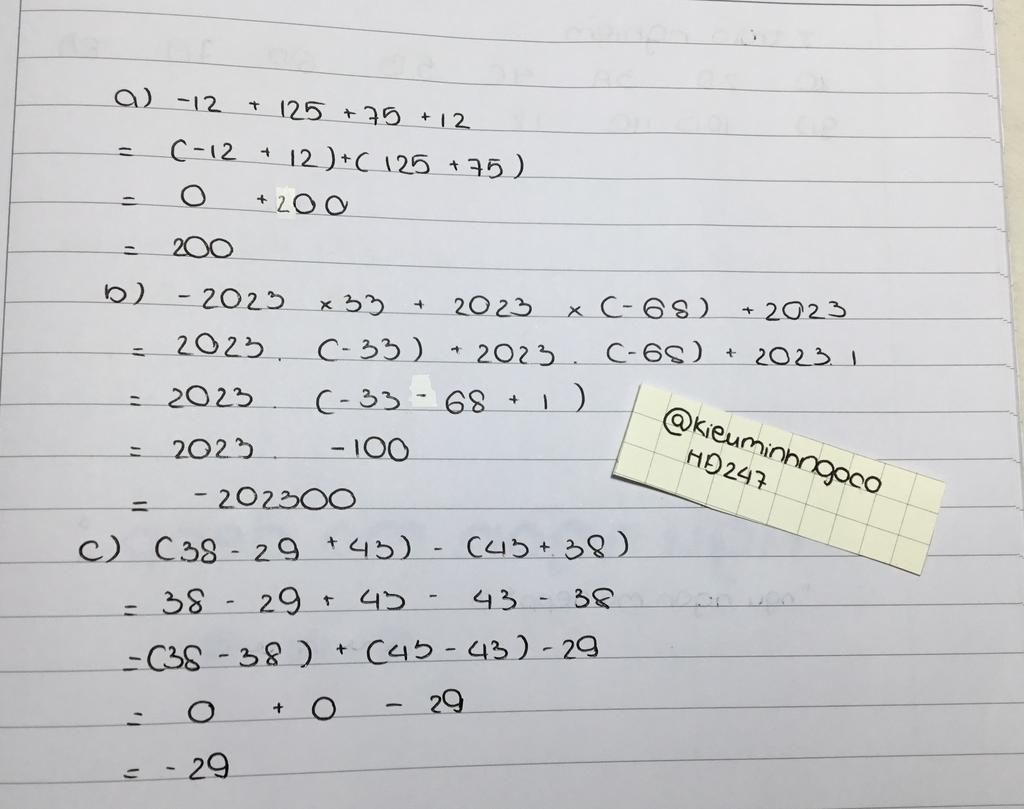 a) -12 + 125 + 75 + 12
= (-12 + 12)+( 125 + 75)
= 0 + 200
= 200
b) -2023 × 33 + 2023 × (-68) + 2023
= 2023 . (-33) + 2023 . (-68) + 2023.1
= 2023 . (-33 - 68 + 1 )
= 2023 . -100
= -202300
@kieuminhngoco
HĐ247
c) (38 - 29 + 43) - (43 + 38)
= 38 - 29 + 43 - 43 - 38
=(38 - 38 ) + (43 - 43) - 29
= 0 + 0 - 29
= -29